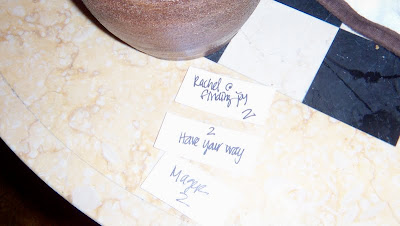 Rachel @
finding joy
2
2
Have your way
2